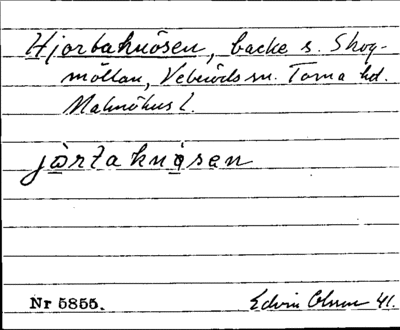 Hjortaknösen, backe s. Skog-
möllan, Veberöds sn. Torna hd.
Malmöhus l.
jò̱rtaknø̱sen
Nr 5855.
Edvin Ohlson 41.